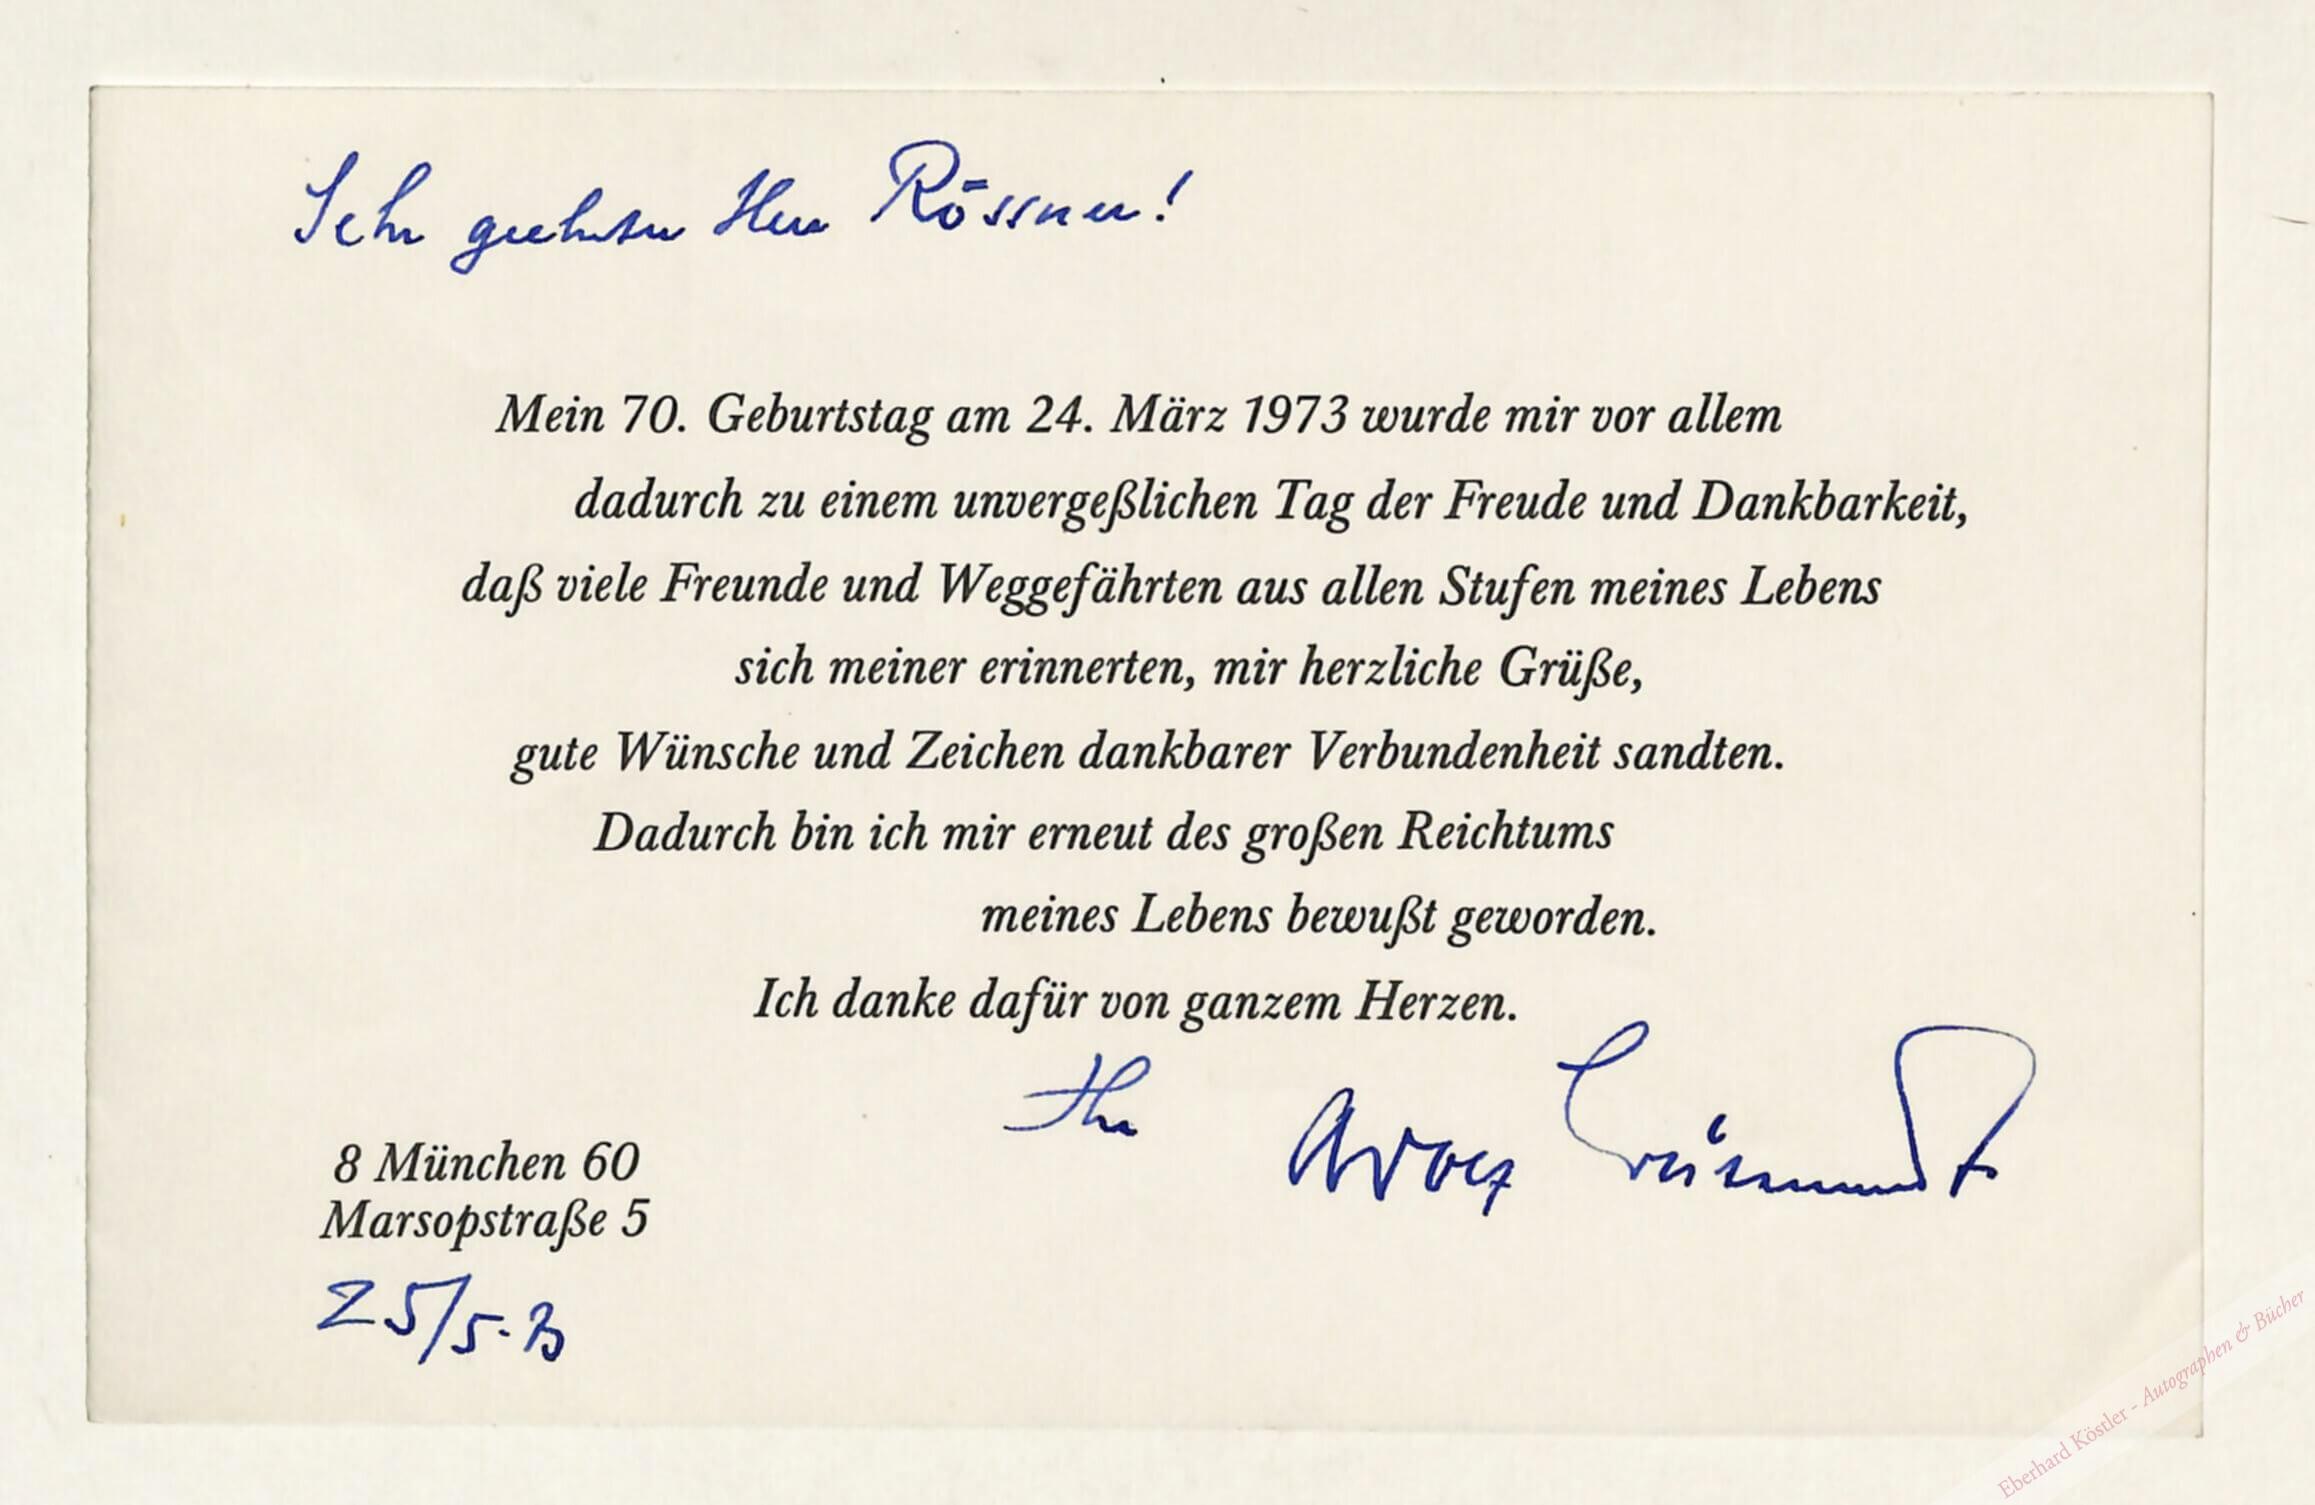 Sehr geehrter Herr Rössner!
Mein 70. Geburtstag am 24. März 1973 wurde mir vor allem
dadurch zu einem unvergeßlichen Tag der Freude und Dankbarkeit,
daß viele Freunde und Weggefährten aus allen Stufen meines Lebens
sich meiner erinnerten, mir herzliche Grüße,
gute Wünsche und Zeichen dankbarer Verbundenheit sandten.
Dadurch bin ich mir erneut des großen Reichtums
meines Lebens bewußt geworden.
Ich danke dafür von ganzem Herzen.
Ihr Adolf Butenandt
8 München 60
Marsopstraße 5
25/5.73
Eberhard Köstler - Autographen & Bücher